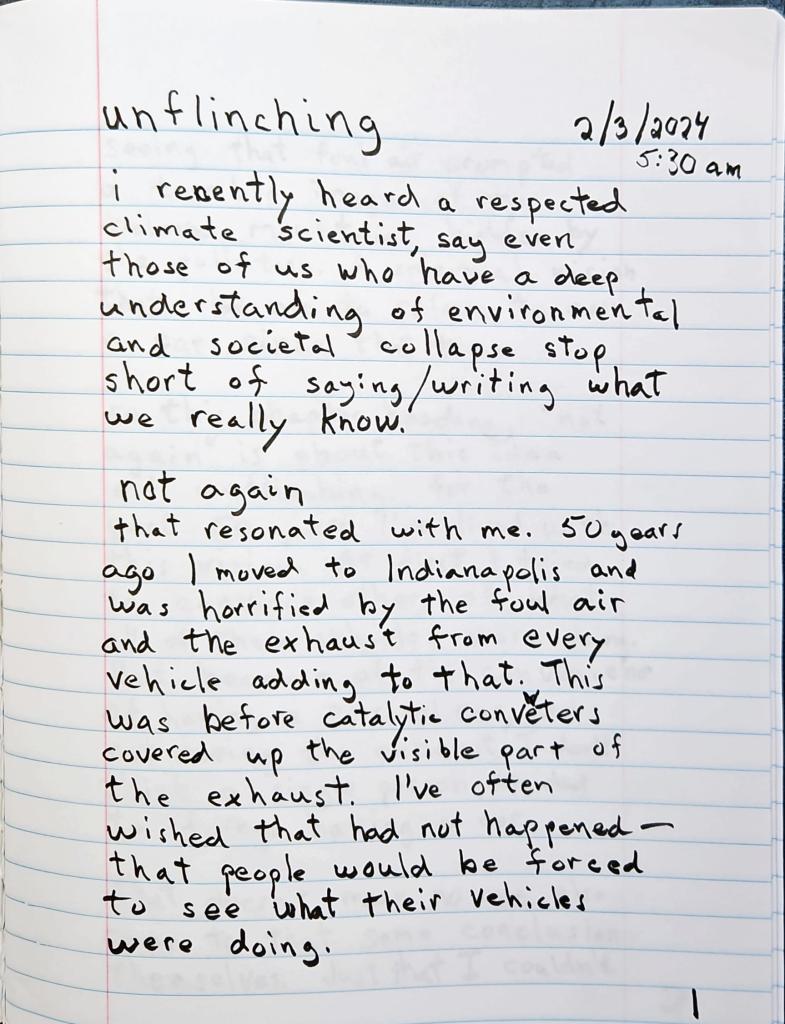 unflinching
2/3/2024
5:30 am
i recently heard a respected
climate scientist, say even
those of us who have a deep
understanding of environmental
and societal collapse stop
short of saying/writing what
we really know.
not again
that resonated with me. 50 years
ago I moved to Indianapolis and
was horrified by the foul air
and the exhaust from every
vehicle adding to that. This
was before catalytic converters
covered up the visible part of
the exhaust. I've often
wished that had not happened—
that people would be forced
to see what their vehicles
were doing.
1